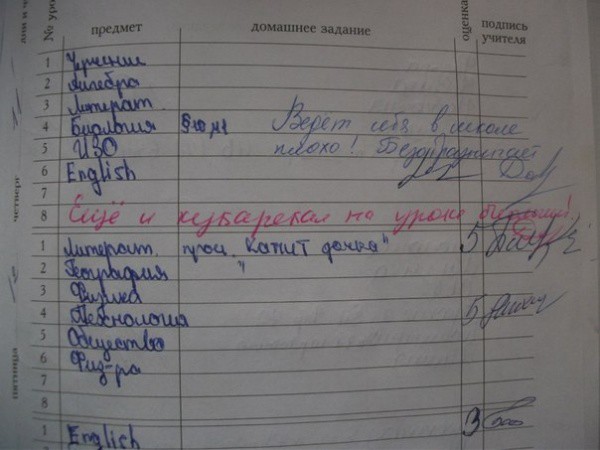 № уро
предмет
домашнее задание
оценка
подпись учителя
1 Черчение
2 Алгебра
3 Литерат.
4 Биология §10, Ведёт себя в школе
5 ИЗО плохо! Безобразничает
6 English
7
четверг
8 Ещё и кукарекал на уроке биологии!
1 Литерат. проч. "Капит дочка" 5
2 География "
3 Физика
4 Технология 5
5 Общество
6 Физ-ра
7
пятница
8
1 English 3